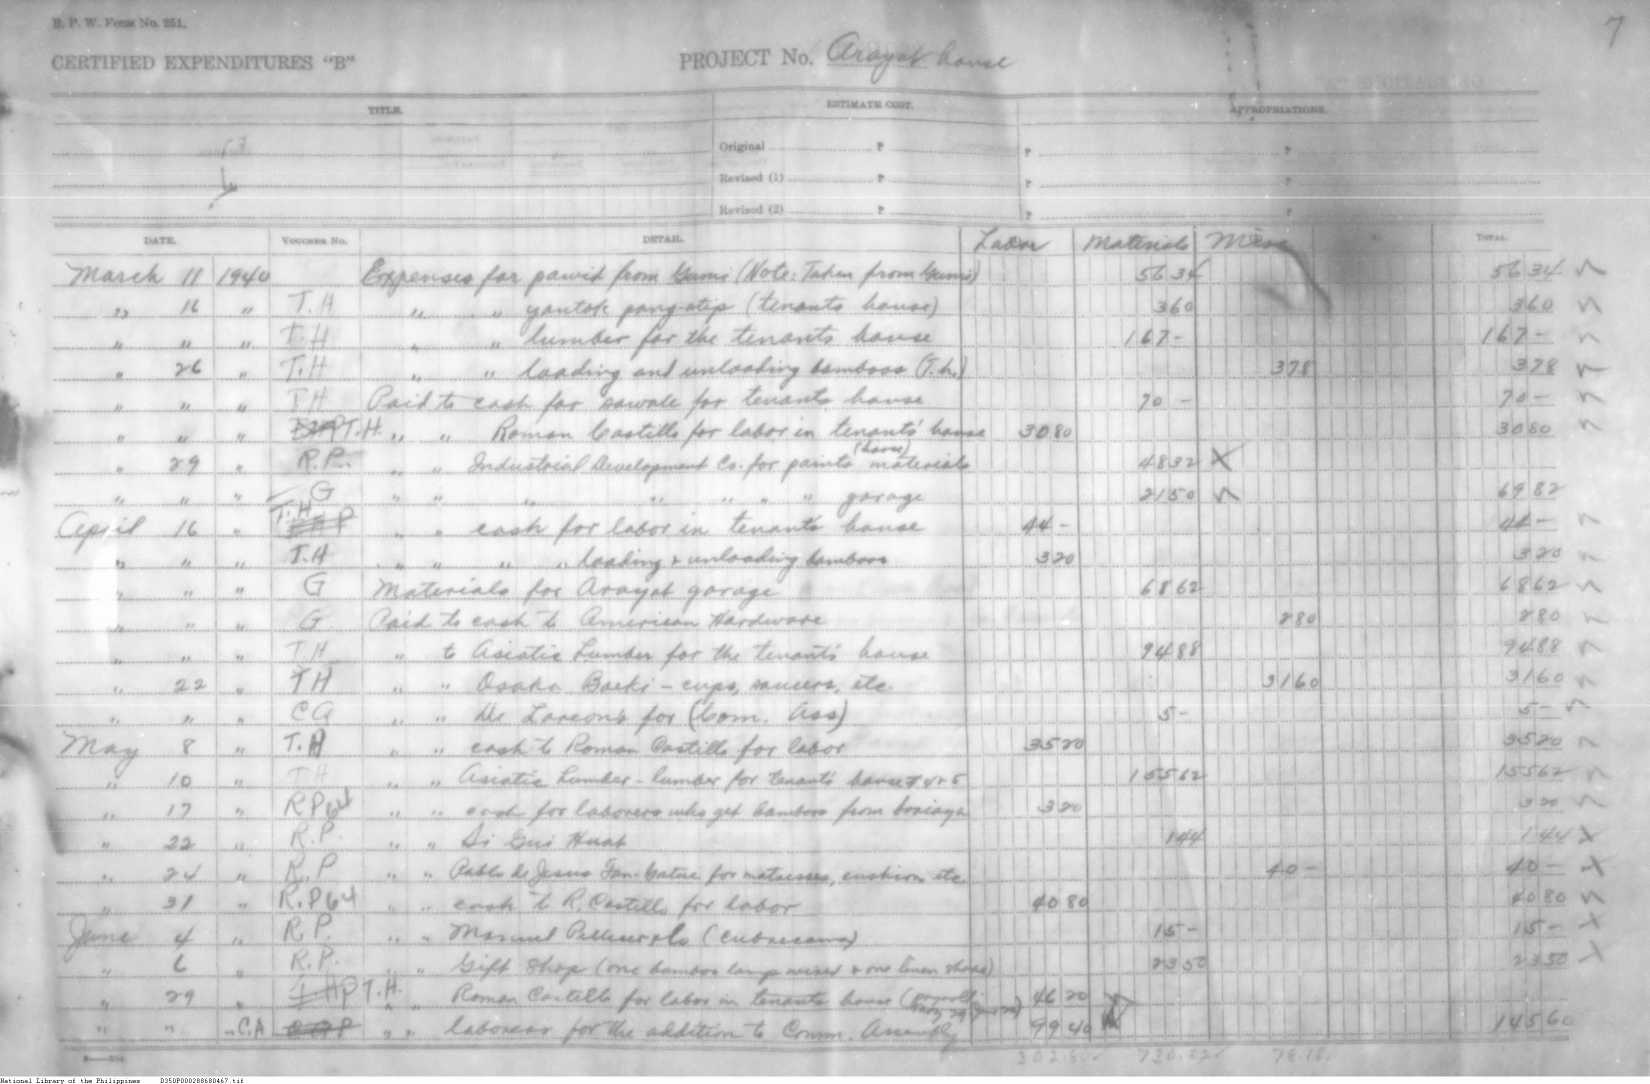 B. P. W. Form No. 251.
7
CERTIFIED EXPENDITURES "B"
PROJECT No. Arayat house
TITLE. ESTIMATE COST. APPROPRIATIONS.
Original ₱ ₱ ₱
Revised (1) ₱ ₱ ₱
Revised (2) ₱ ₱ ₱
DATE. VOUCHER No. DETAIL. Labor Materials Misc TOTAL.
March 11 1940 Expenses for pawid from Gumi (Note: Taken from Gumi) 56 34 56 34
" 16 " T.H " " yantok pang-atip (tenants house) 3 60 3 60
" " " T.H " " lumber for the tenants house 167 - 167 -
" 26 " T.H " " loading and unloading bamboos (T.h.) 3 78 3 78
" " " T H Paid to cash for sawale for tenants house 70 - 70 -
" " " T.H. " " Roman Castillo for labor in tenants' house 30 80 30 80
" 29 " R.P. " " Industrial Development Co. for paints (house) materials 48 32 X
" " " G " " " " " " " garage 21 50 69 82
April 16 " T.H " " cash for labor in tenants house 44 - 44 -
" " " T.H " " " " loading & unloading bamboos 3 20 3 20
" " " G Materials for Arayat garage 68 62 68 62
" " " G Paid to cash to American Hardware 2 80 2 80
" " " T H " to Asiatic Lumber for the tenants' house 94 88 94 88
" 22 " T H " " Osaka Boeki - cups, saucers, etc. 31 60 31 60
" " " C A " " De Larcon's for (Com. Ass) 5 - 5 -
May 8 " T.H " " cash to Roman Castillo for labor 35 20 35 20
" 10 " T H " " Asiatic Lumber - lumber for tenants house # 4 & 5 155 62 155 62
" 17 " R P 64 " " cash for laborers who get bamboos from 3 20 3 20
" 22 " R.P. " " Si Gui Huat 1 44 1 44 X
" 24 " R.P " " Pablo de Jesus for mattresses, cushions etc. 40 - 40 - X
" 31 " R.P 64 " " cash to R. Castillo for labor 40 80 40 80
June 4 " R P. " " Manuel 15 - 15 - X
" 6 " R.P. " " Gift Shop (one bamboo lamp & one linen shade) 23 50 23 50 X
" 29 " T.H. " " Roman Castillo for labor in tenants house (payroll 46 20
" " " C.A " " laborers for the addition to Comm. Assembly 99 40 145 60
302.80 78.18
National Library of the Philippines D350P000288680467.tif